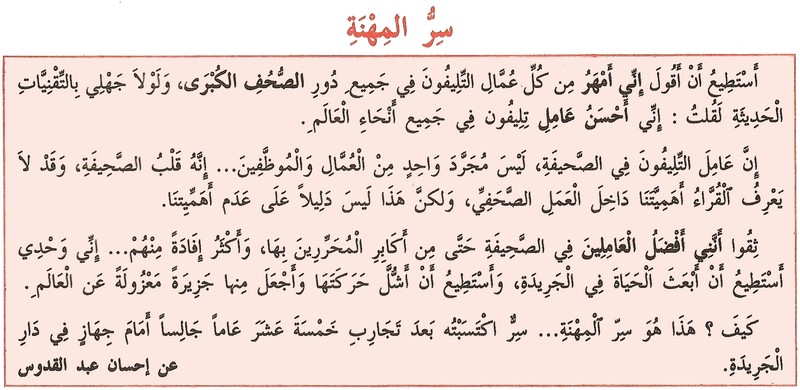 سِرُّ المِهْنَةِ
أَسْتَطِيعُ أَنْ أَقُولَ إِنِّي أَمْهَرُ مِن كُلِّ عُمَّالِ التِّلِيفُونَ فِي جَمِيعِ دُورِ الصُّحُفِ الكُبْرَى، وَلَوْلاَ جَهْلِي بِالتِّقْنِيَّاتِ
الْحَدِيثَةِ لَقُلتُ : إِنِّي أَحْسَنُ عَامِلِ تِلِيفُون فِي جَمِيعِ أَنْحَاءِ الْعَالَمِ.
إِنَّ عَامِلَ التِّلِيفُونَ فِي الصَّحيفَةِ، لَيْسَ مُجَرَّدَ وَاحِدٍ مِنْ الْعُمَّالِ وَالْمُوظَّفِينَ... إِنَّهُ قَلْبُ الصَّحِيفَةِ، وَقَدْ لاَ
يَعْرِفُ ٱلْقُرَّاءُ أَهَمِيَّتَنَا دَاخِلَ الْعَمَلِ الصَّحَفِيِّ، وَلكنَّ هَذَا لَيسَ دَلِيلاً عَلَى عَدَم أَهَمِّيتِنَا.
ثِقُوا أَنَّنِي أَفْضَلُ الْعَامِلِينَ فِي الصَّحِيفَةِ حَتَّى مِن أَكَابِرِ الْمُحَرِّرِينَ بِهَا، وَأَكْثَرُ إِفَادَةً مِنْهُمْ... إِنِّي وَحْدِي
أَسْتَطِيعُ أَنْ أَبْعَثَ اَلْحَيَاةَ فِي الْجَرِيدَةِ، وَأَسْتَطِيعُ أَنْ أَشُلَّ حَرَكَتَهَا وَأَجْعَلَ مِنها جَزِيرَةً مَعْزُولَةً عَن الْعَالَمِ.
كَيفَ ؟ هَذَا هُوَ سِرّ ٱلْمِهْنَةِ... سِرٌّ اكْتَسَبْتُه بَعدَ تَجَارِبِ خَمْسَةَ عَشَرَ عَاماً جَالِساً أَمَامَ جِهَازٍ فِي دَارِ
الْجَرِيدَةِ.
عن إحسان عبد القدوس